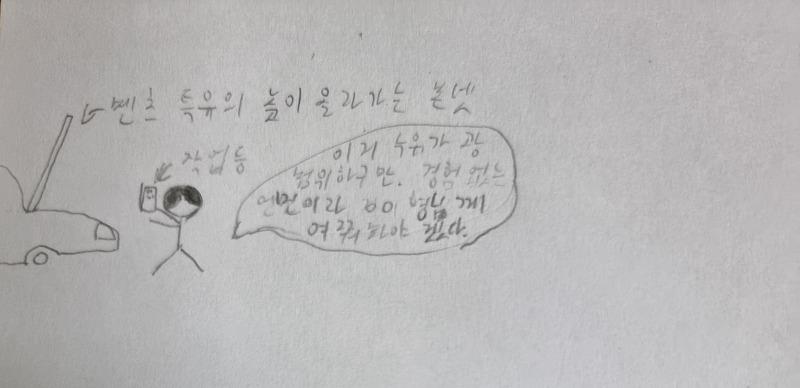 벤츠 특유의 높이 올라가는 본넷
작업등
이리 누유가 광
범위하구만. 경험 없는
엔진이라 많이 헝님께
여쭤봐야 겠다.